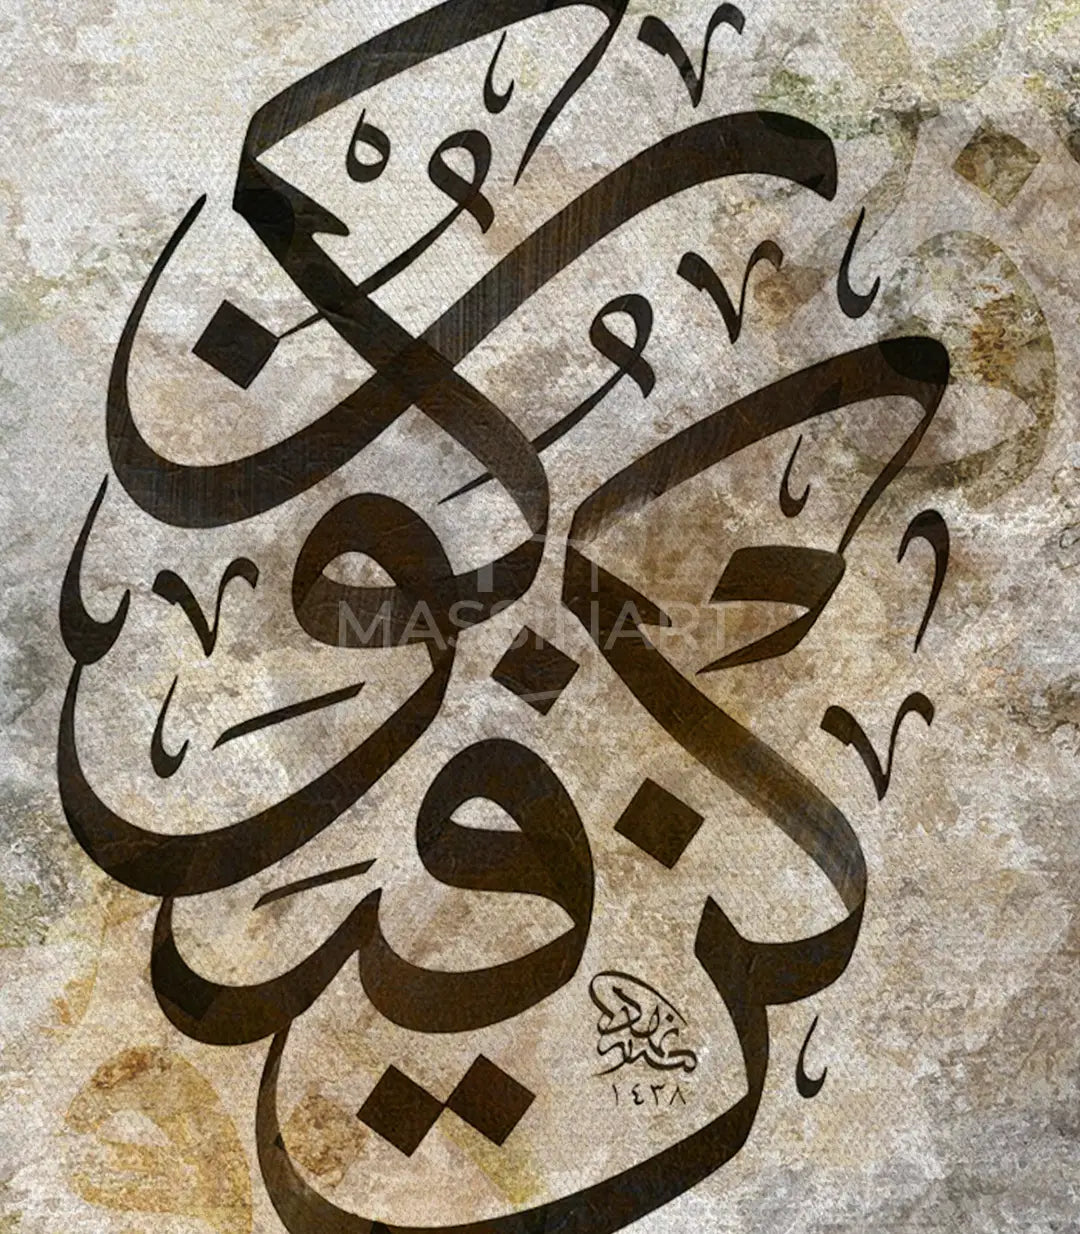 كُنْ فَيَكُونُ
MASSIHART
١٤٣٨